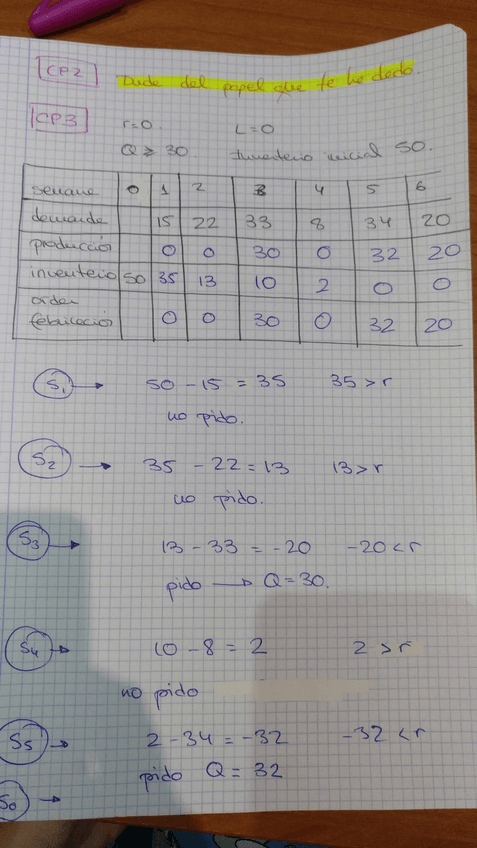 CP2 Duda del papel que te he dado.
CP3 r=0. L=0
Q ≥ 30. Inventario inicial 50.
semana 0 1 2 3 4 5 6
demanda 15 22 33 8 34 20
producció 0 0 30 0 32 20
inventario 50 35 13 10 2 0 0
orden
fabricació 0 0 30 0 32 20
S1 → 50 - 15 = 35 35 > r
no pido.
S2 → 35 - 22 = 13 13 > r
no pido.
S3 → 13 - 33 = -20 -20 < r
pido → Q = 30.
S4 → 10 - 8 = 2 2 > r
no pido
S5 → 2 - 34 = -32 -32 < r
pido Q = 32
S6 →